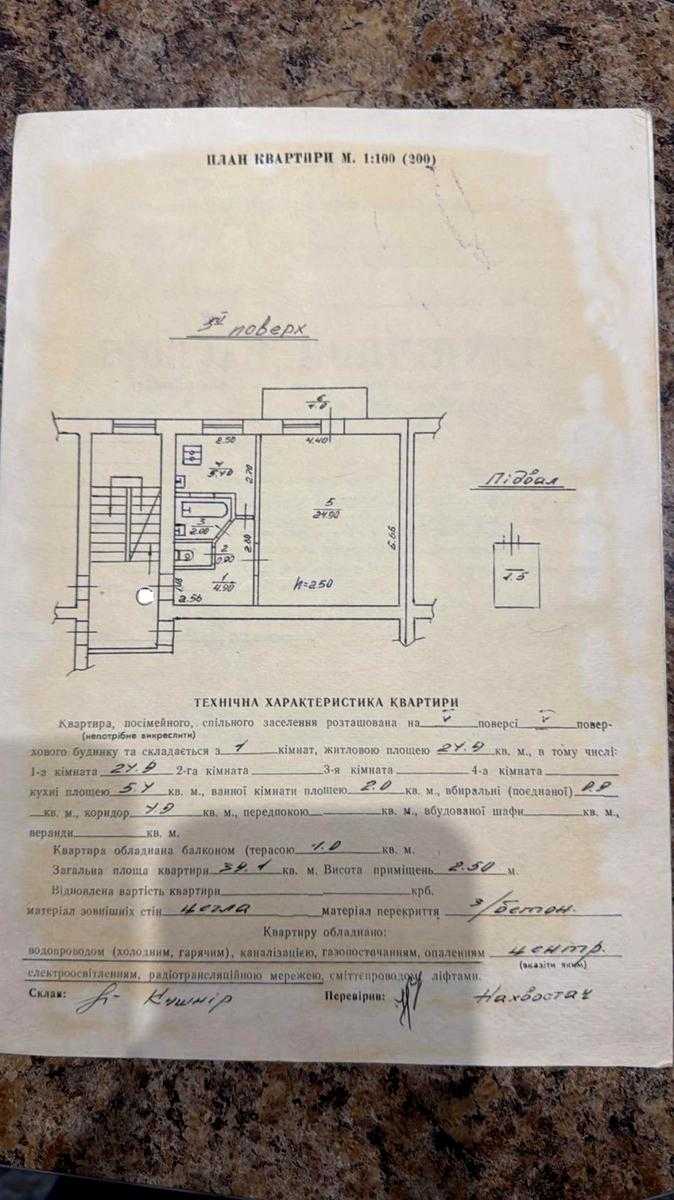 ПЛАН КВАРТИРИ М. 1:100 (200)
поверх
6
1.0
2.50
4.40
4
5.40
2.70
3
2.00
5
24.90
2
0.90
2.80
6.66
1
4.90
h=2.50
2.56
Підвал
1.5
ТЕХНІЧНА ХАРАКТЕРИСТИКА КВАРТИРИ
Квартира, посімейного, спільного заселення розташована на V поверсі V повер-
(непотрібне викреслити)
хового будинку та складається з 1 кімнат, житловою площею 24.9 кв. м., в тому числі:
1-а кімната 24.9 2-га кімната 3-я кімната 4-а кімната
кухні площею 5.4 кв. м., ванної кімнати площею 2.0 кв. м., вбиральні (поєднаної) 0.9
кв. м., коридор 4.9 кв. м., передпокою кв. м., вбудованої шафи кв. м.,
веранди кв. м.
Квартира обладнана балконом (терасою 1.0 кв. м.
Загальна площа квартири 39.1 кв. м. Висота приміщень 2.50 м.
Відновлена вартість квартири крб.
матеріал зовнішніх стін цегла матеріал перекриття з/бетон.
Квартиру обладнано:
водопроводом (холодним, гарячим), каналізацією, газопостачанням, опаленням центр.
(вказіти яким)
електроосвітленням, радіотрансляційною мережею, сміттєпроводом, ліфтами.
Склав: Кушнір Перевірив: Нахвостач